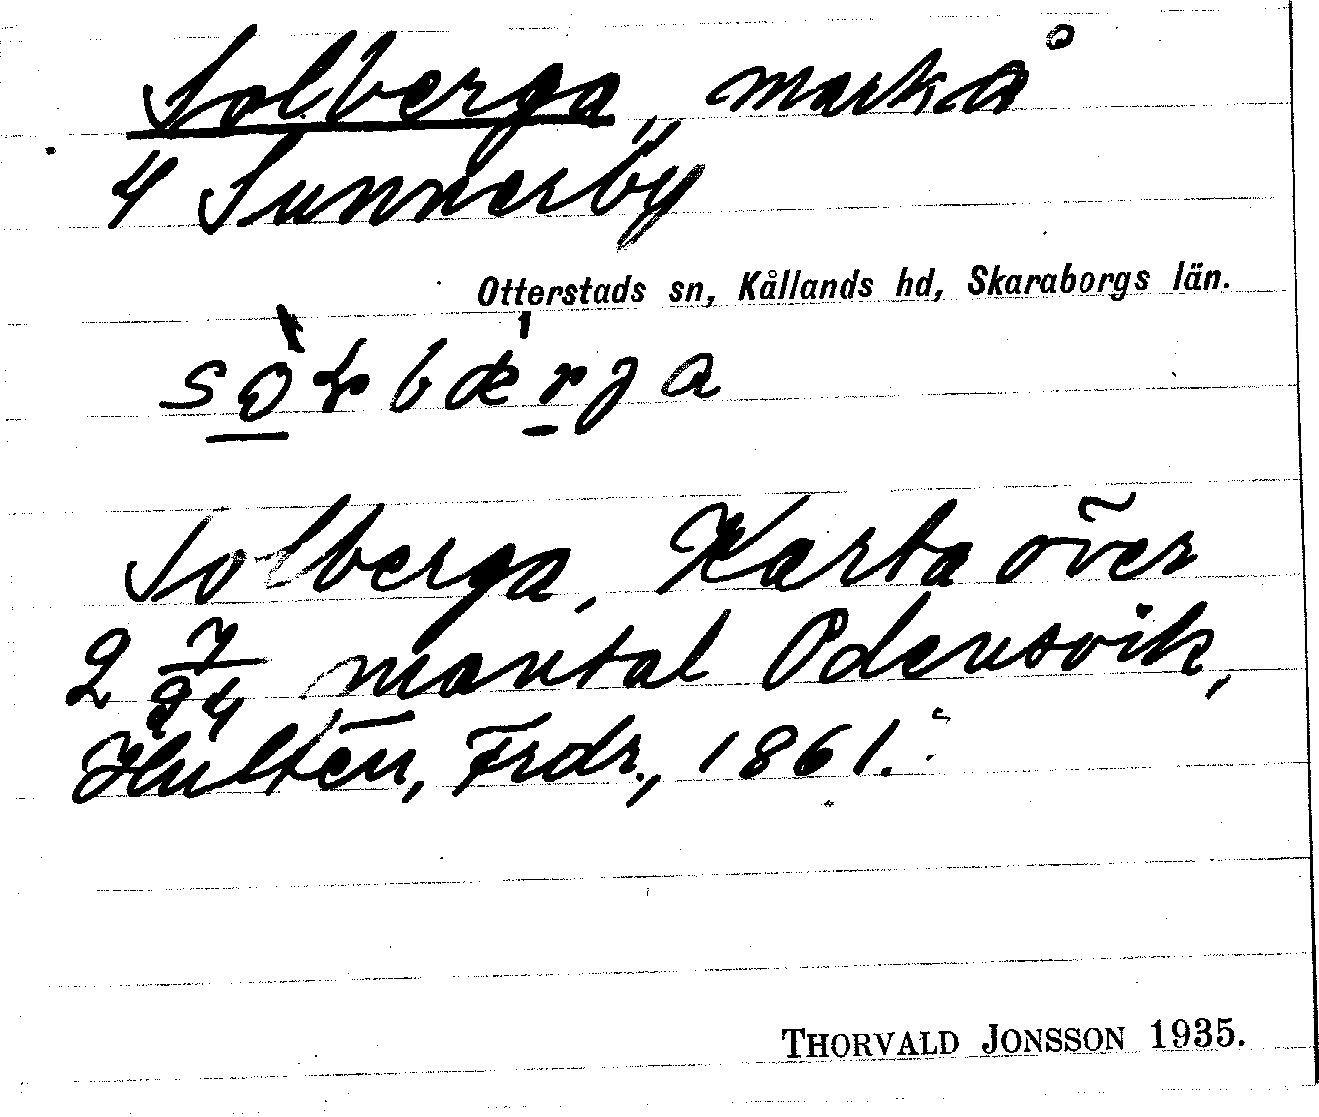 Solberga, mark å
4 Sunnerby
Otterstads sn, Kållands hd, Skaraborgs län.
Solberga, Karta över
2 7/24 mantal Odensvik,
Hultén, Frdr., 1861.
THORVALD JONSSON 1935.